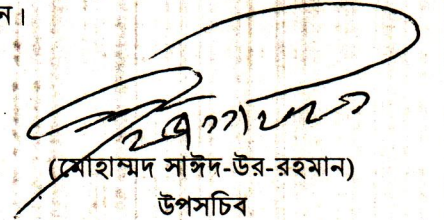 ন।
(মোহাম্মদ সাঈদ-উর-রহমান)
উপসচিব